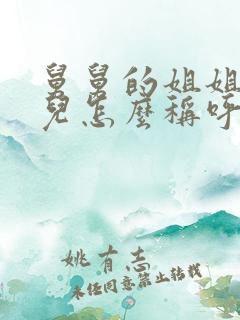 舅舅的姐姐
兒怎麼稱呼
姚有志
未经同意禁止转载